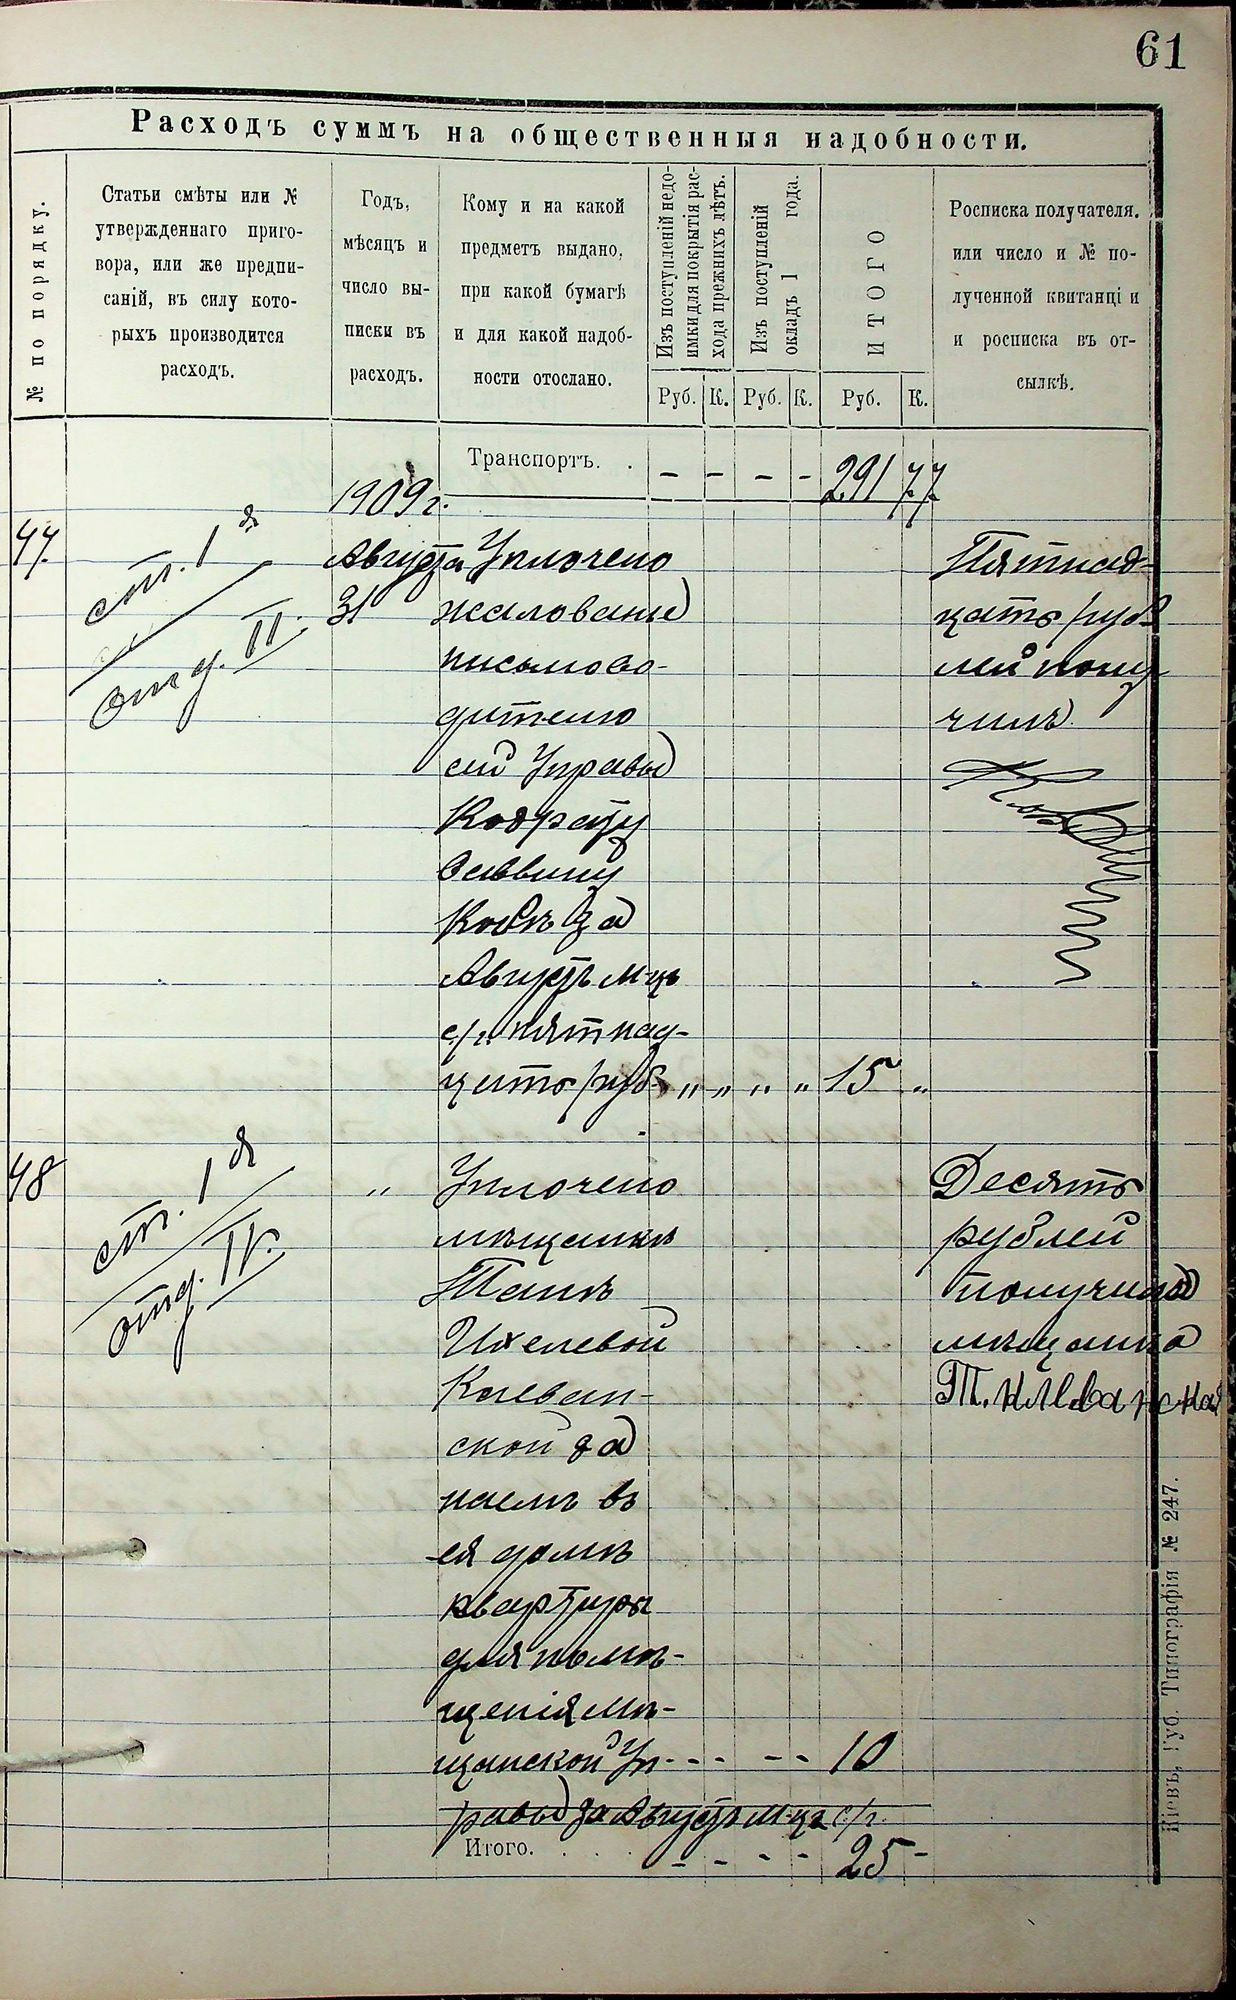 61
Расходъ суммъ на общественныя надобности.
№ по порядку.
Статьи смѣты или №
утвержденнаго приго-
вора, или же предпи-
саній, въ силу кото-
рыхъ производится
расходъ.
Годъ,
мѣсяцъ и
число вы-
писки въ
расходъ.
Кому и на какой
предметъ выдано,
при какой бумагѣ
и для какой надоб-
ности отослано.
Изъ поступленій недо-
имки для покрытія рас-
хода прежнихъ лѣтъ.
Изъ поступленій
окладъ 1 года.
ИТОГО
Росписка получателя.
или число и № по-
лученной квитанці и
и росписка въ от-
сылкѣ.
Руб. К. Руб. К. Руб. К.
Транспортъ. . - - - - 291 77
1909 г.
47.
ст. 1я
отд. II.
Августа
31
Уплочено
жалованье
письмово-
дителю
сей Управы
Кодрату
Саввину
за
Августъ м-цъ
с/г. пятнад-
цать руб. „ „ „ „ 15 „
Пятнад-
цать руб-
лей полу
чилъ
48
ст. 1я
отд. IV.
„
Уплочено
мѣщанкѣ
Ихелевой
Клеван-
ской за
наемъ въ
ея домѣ
квартиры
для помѣ-
щенія мѣ-
щанской Уп- - - - - 10
равы за Августъ м-цъ с/г.
Десять
рублей
получила
мѣщанка
Т. Клеванская
Итого. . . . - - - - 25 -
Кіевъ, Губ. Типографія № 247.